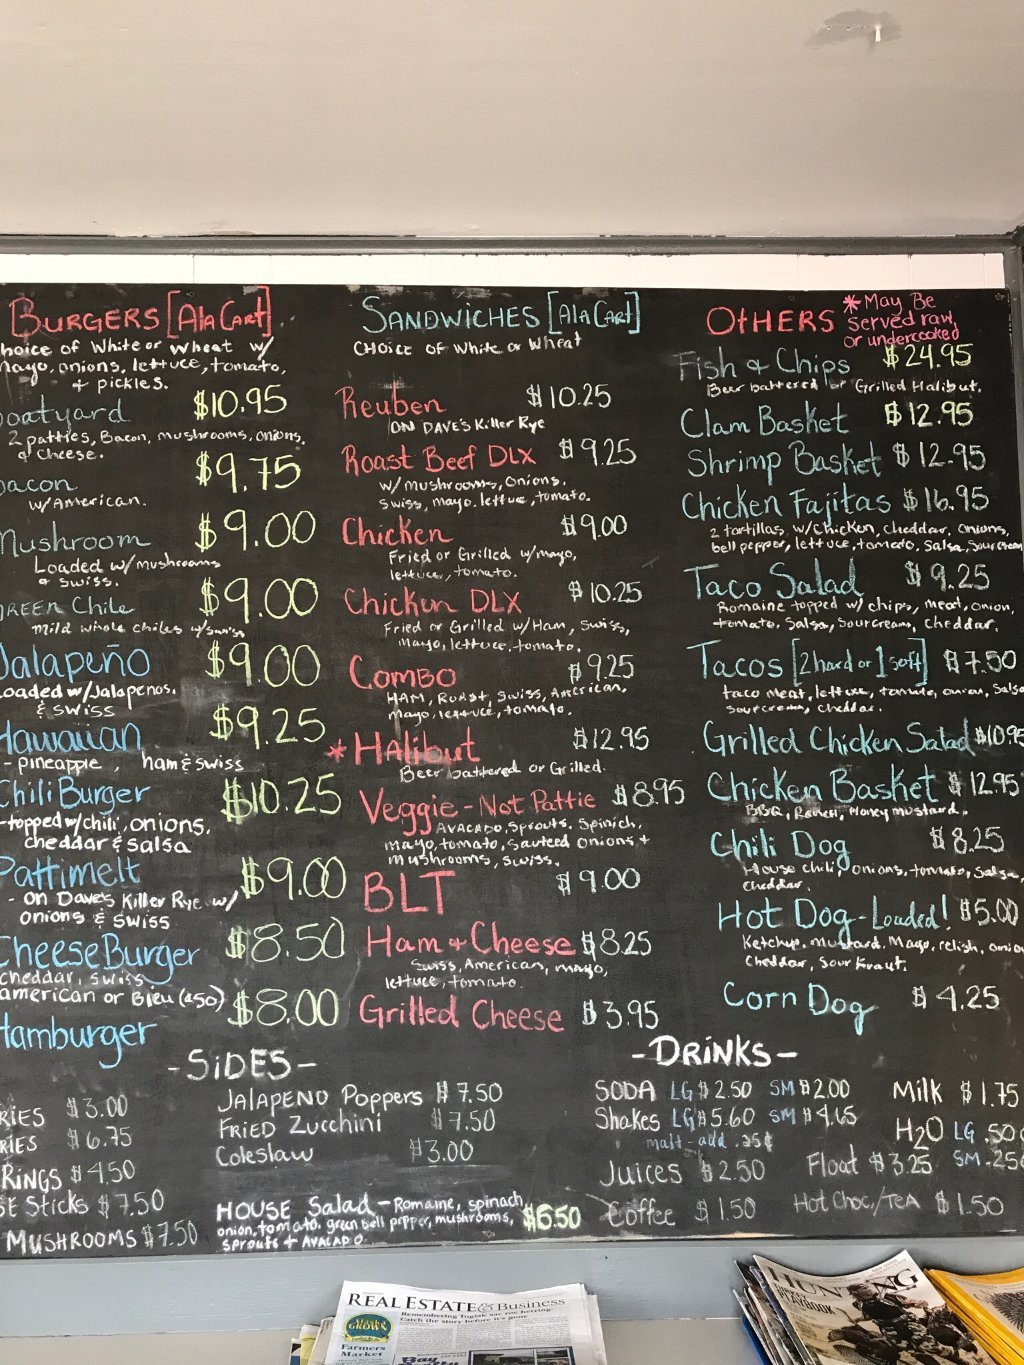 BURGERS [Ala Cart]
hoice of White or Wheat w/
mayo, onions, lettuce, tomato,
+ pickles.
oatyard $10.95
2 patties, Bacon, mushrooms, onions,
& cheese.
acon $9.75
w/American.
Mushroom $9.00
Loaded w/mushrooms
& swiss.
GREEN Chile $9.00
mild whole chiles w/swiss
Jalapeño $9.00
Loaded w/Jalapenos.
& SWISS
Hawaiian $9.25
- pineapple, ham & swiss
Chili Burger $10.25
-topped w/chili, onions,
cheddar & salsa
Pattimelt $9.00
- on Dave's Killer Rye w/
onions & swiss
CheeseBurger $8.50
cheddar, swiss
american or Bleu (.50)
Hamburger $8.00
SANDWICHES [Ala Cart]
CHOICE of White or Wheat
Reuben $10.25
ON DAVE'S Killer Rye
Roast Beef DLX $9.25
w/mushrooms, Onions.
swiss, mayo, lettuce, tomato.
Chicken $9.00
Fried or Grilled w/mayo,
lettuce, tomato.
Chicken DLX $10.25
Fried or Grilled w/Ham, Swiss,
Mayo, lettuce, tomato.
Combo $9.25
HAM, Roast, Swiss, American,
Mayo, lettuce, tomato.
*Halibut $12.95
Beer battered or Grilled.
Veggie - Not Pattie $8.95
Avacado, Sprouts, Spinich,
mayo, tomato, Sauteed Onions +
Mushrooms, Swiss.
BLT $9.00
Ham + Cheese $8.25
Swiss, American, mayo,
lettuce, tomato.
Grilled Cheese $3.95
OtHERS
*May Be
Served raw
or undercooked
Fish & Chips $24.95
Beer battered or Grilled Halibut.
Clam Basket $12.95
Shrimp Basket $12.95
Chicken Fajitas $16.95
2 tortillas, w/Chicken, cheddar, onions,
bell pepper, lettuce, tomato, salsa, Sour cream
Taco Salad $9.25
Romaine topped w/ chips, meat, onion,
tomato, salsa, Sour cream, cheddar.
Tacos [2 hard or 1 soft] $7.50
taco meat, lettuce, tomato, onion, Salsa
sour cream, cheddar.
Grilled Chicken Salad $10.95
Chicken Basket $12.95
BBQ, Ranch, Honey mustard.
Chili Dog $8.25
House chili, onions, tomato, Salsa,
cheddar.
Hot Dog - Loaded! $5.00
Ketchup, mustard, Mayo, relish, onio
Cheddar, Sour Kraut.
Corn Dog $4.25
-SIDES-
RIES $3.00
RIES $6.75
RINGS $4.50
SE Sticks $7.50
MUSHROOMS $7.50
JALAPENO Poppers $7.50
FRIED Zucchini $7.50
Coleslaw $3.00
HOUSE Salad - Romaine, spinach,
onion, tomato, green bell pepper, mushrooms, $6.50
sprouts + AVACADO
-DRINKS-
SODA LG $2.50 SM $2.00
Shakes LG $5.60 SM $4.65
malt-add .25¢
Juices $2.50
Coffee $1.50
Milk $1.75
H2O LG .50¢
SM .25¢
Float $3.25
Hot Choc/TEA $1.50
REAL ESTATE & Business
Remembering Togiak sac roe herring:
Catch the story before it's gone
Alaska
GROWN
Farmers
Market
Bay
HUNTING
TURKEY
PLAYBOOK